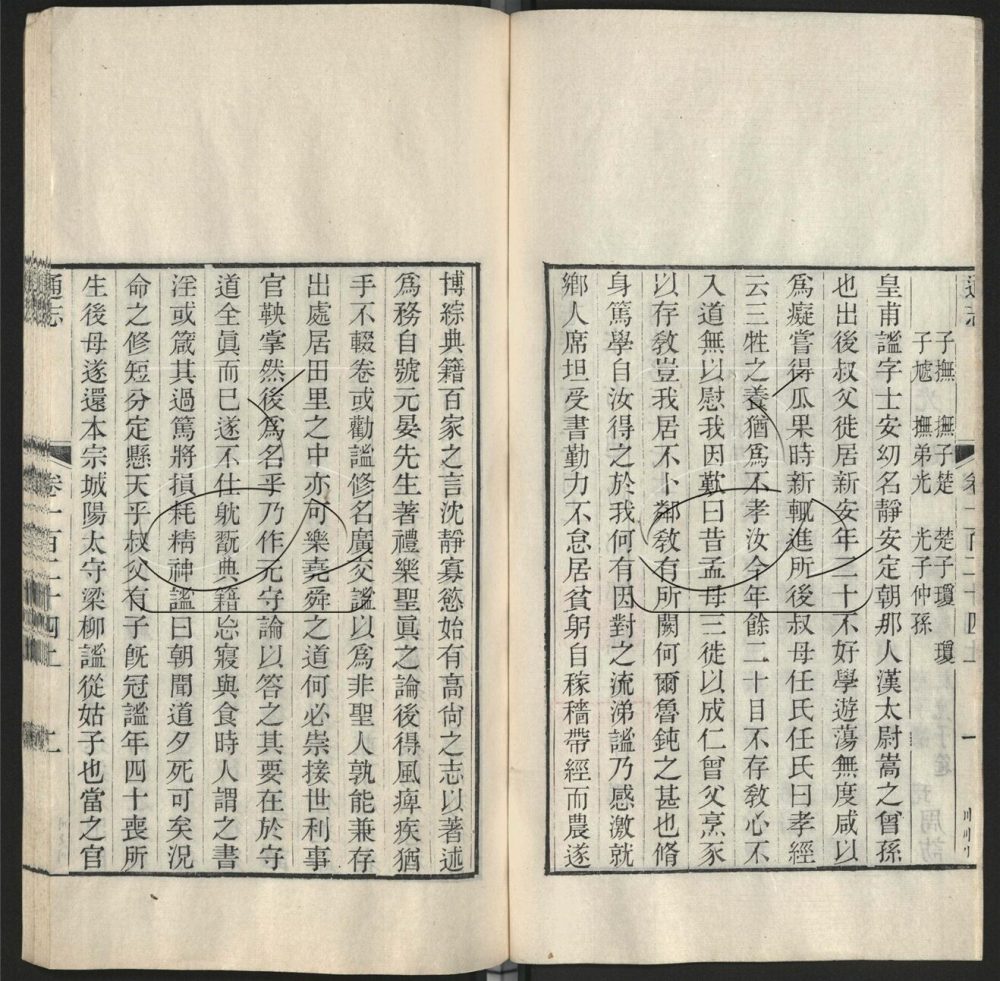 通志
卷一百二十四上
一
子撫　撫子楚　楚子瓊　瓊
子㡣　撫弟光　光子仲孫
皇甫謐字士安幼名靜安定朝那人漢太尉嵩之曾孫
也出後叔父徙居新安年二十不好學遊蕩無度咸以
為癡嘗得瓜果時新輒進所後叔母任氏任氏曰孝經
云三牲之養猶為不孝汝今年餘二十目不存教心不
入道無以慰我因歎曰昔孟母三徙以成仁曾父烹豕
以存教豈我居不卜鄰教有所闕何爾魯鈍之甚也脩
身篤學自汝得之於我何有因對之流涕謐乃感激就
鄉人席坦受書勤力不怠居貧躬自稼穡帶經而農遂
博綜典籍百家之言沈靜寡慾始有高尚之志以著述
為務自號元晏先生著禮樂聖眞之論後得風痺疾猶
手不輟卷或勸謐修名廣交謐以為非聖人孰能兼存
出處居田里之中亦可樂堯舜之道何必崇接世利事
官鞅掌然後為名乎乃作元守論以答之其要在於守
道全眞而已遂不仕躭翫典籍忘寢與食時人謂之書
淫或箴其過篤將損耗精神謐曰朝聞道夕死可矣況
命之修短分定懸天乎叔父有子旣冠謐年四十喪所
生後母遂還本宗城陽太守梁柳謐從姑子也當之官
通志
卷一百二十四上
二